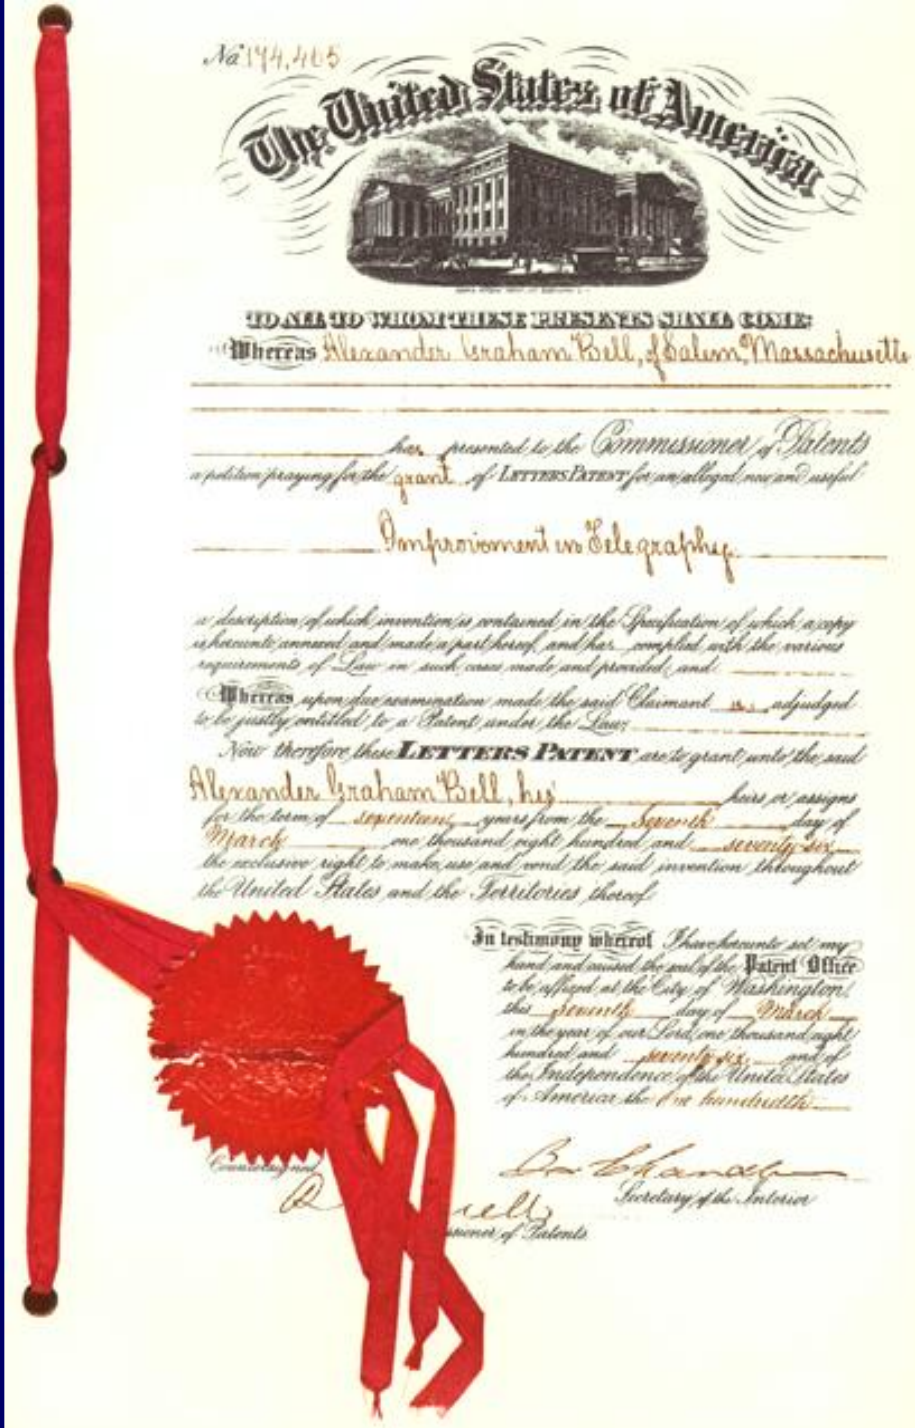 No 174,465
The United States of America
TO ALL TO WHOM THESE PRESENTS SHALL COME:
Whereas Alexander Graham Bell, of Salem, Massachusetts
has presented to the Commissioner of Patents
a petition praying for the grant of LETTERS PATENT for an alleged new and useful
Improvement in Telegraphy
a description of which invention is contained in the Specification of which a copy
is hereunto annexed and made a part hereof, and has complied with the various
requirements of Law in such cases made and provided, and
Whereas upon due examination made the said Claimant is adjudged
to be justly entitled to a Patent under the Law;
Now therefore these LETTERS PATENT are to grant unto the said
Alexander Graham Bell, his heirs or assigns
for the term of seventeen years from the seventh day of
March one thousand eight hundred and seventy-six
the exclusive right to make, use and vend the said invention throughout
the United States and the Territories thereof
In testimony whereof I have hereunto set my
hand and caused the seal of the Patent Office
to be affixed at the City of Washington
this seventh day of March
in the year of our Lord one thousand eight
hundred and seventy-six and of
the Independence of the United States
of America the one hundredth.
Countersigned
Secretary of the Interior
of Patents